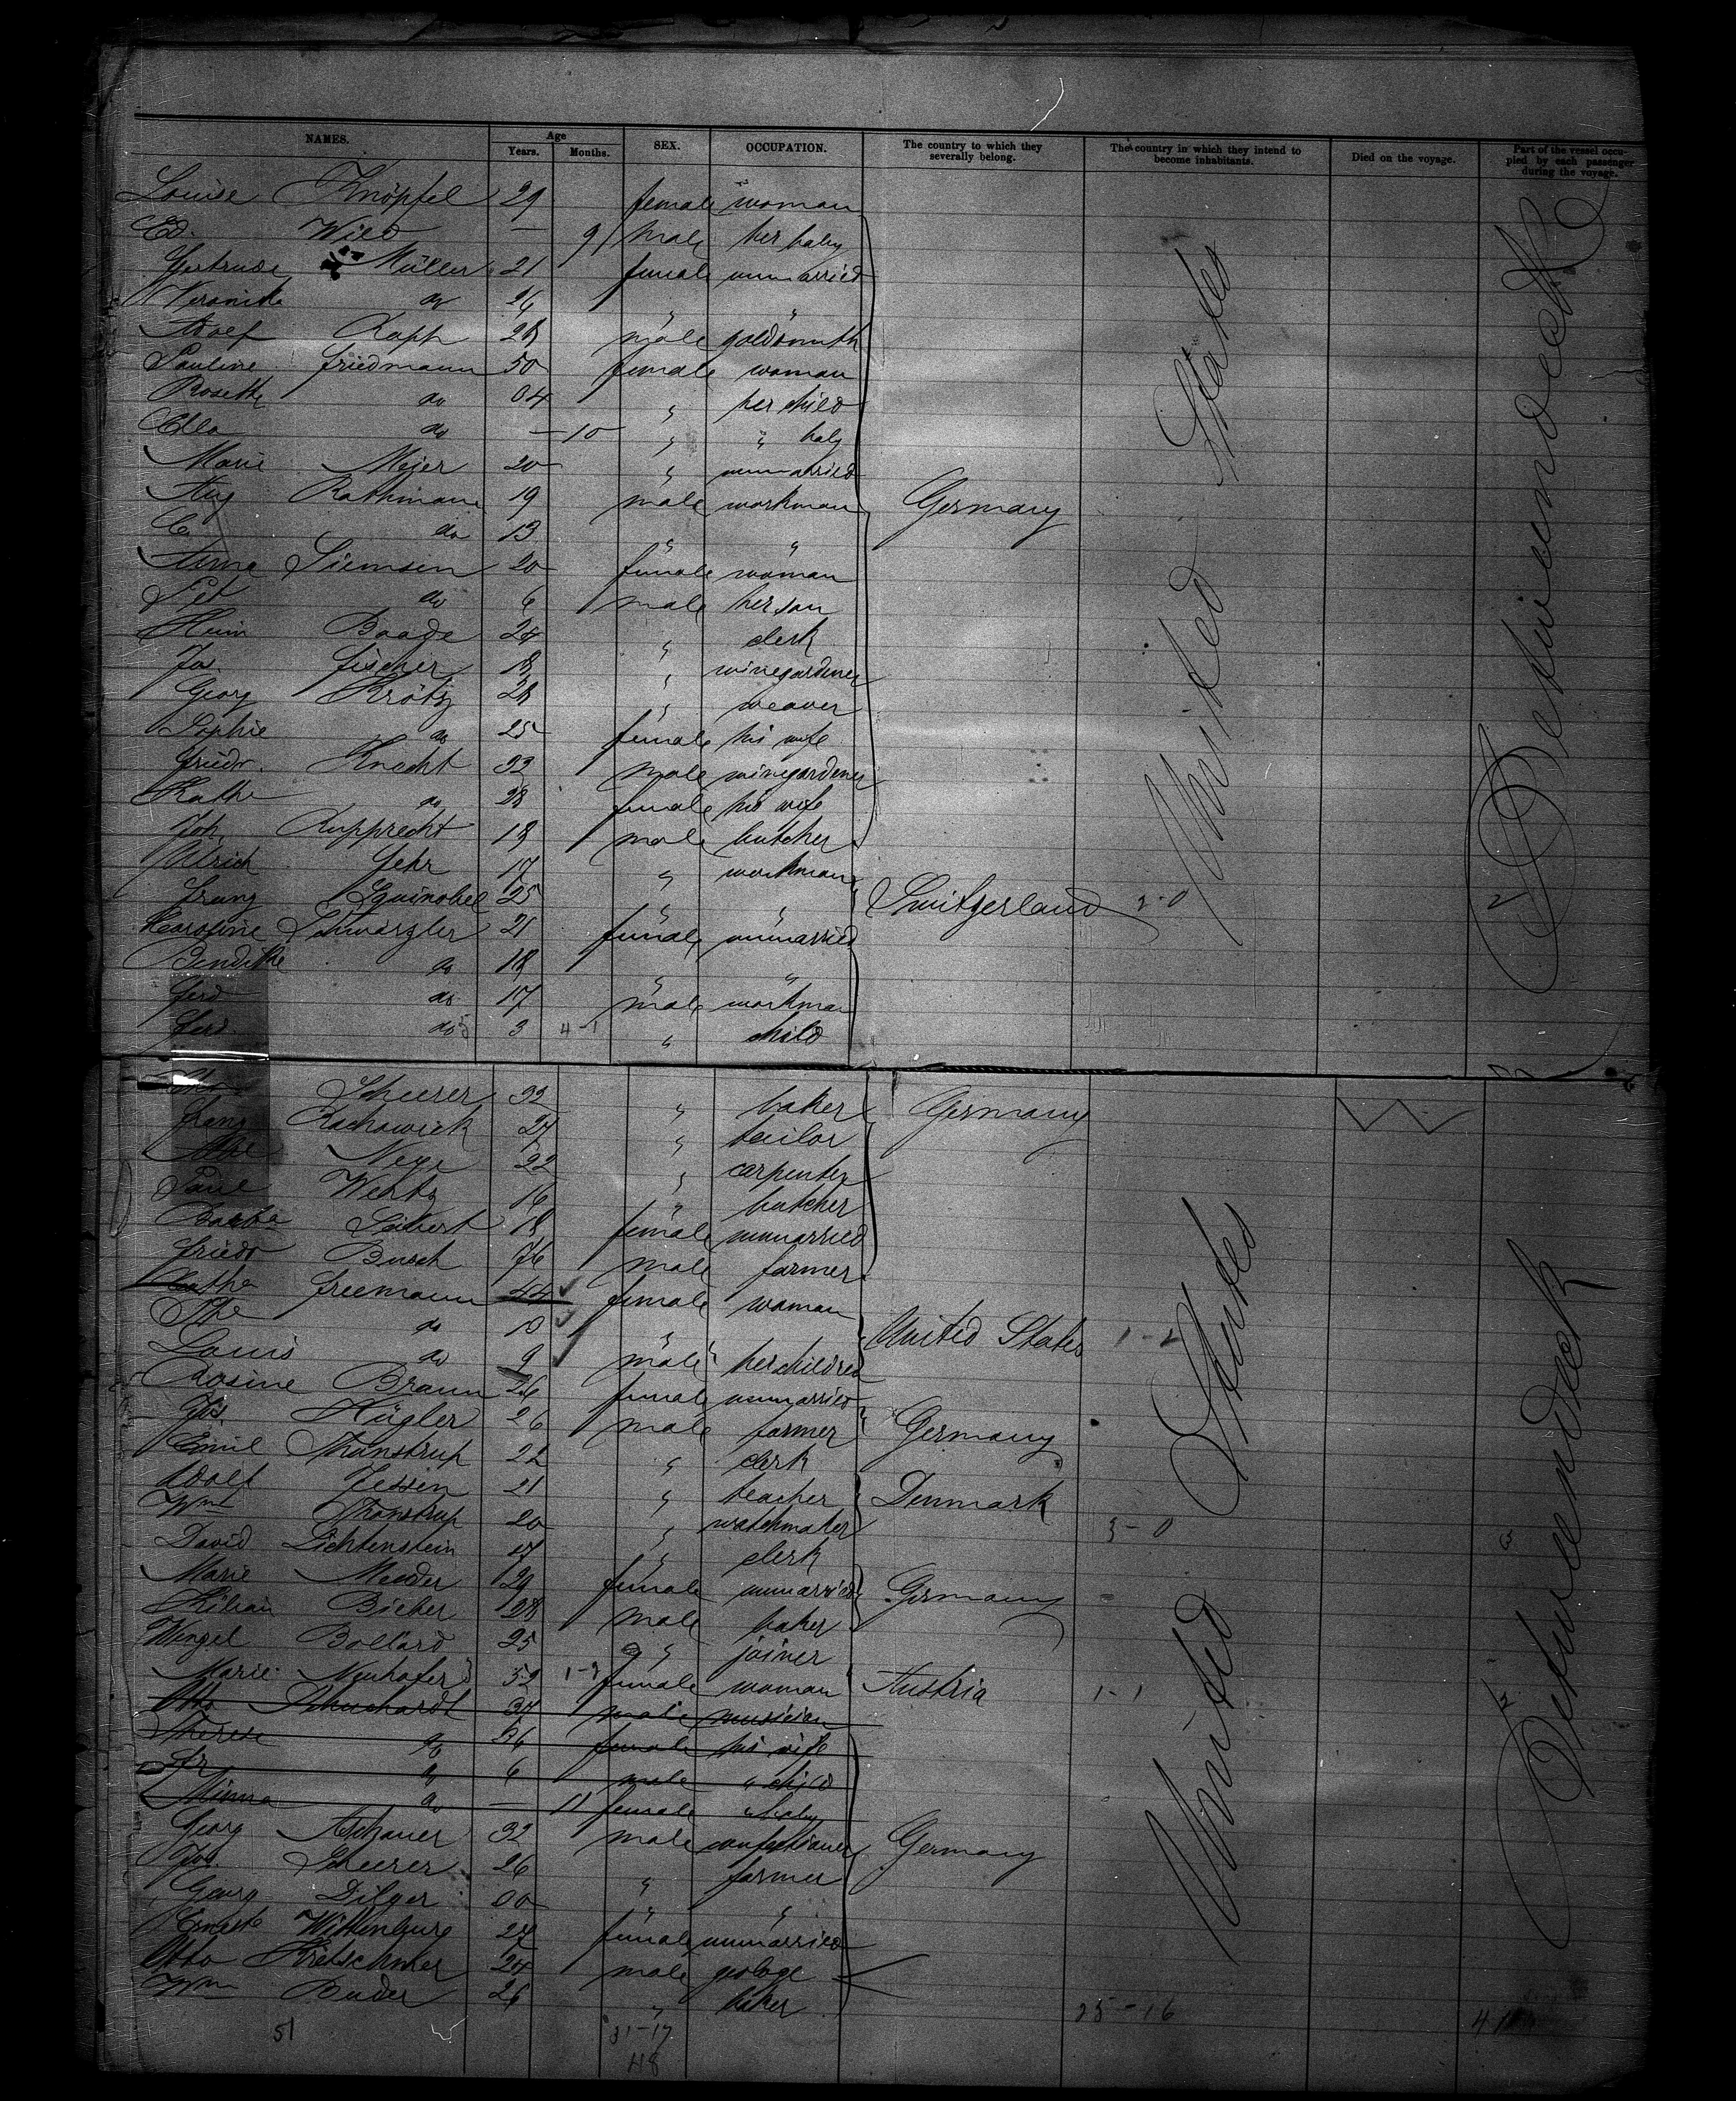 NAMES. Age Years. Months. SEX. OCCUPATION. The country to which they severally belong. The country in which they intend to become inhabitants. Died on the voyage. Part of the vessel occupied by each passenger during the voyage.
Louise Knöpfel 29 female woman
Ed. Wild — 9 male her baby
Gertrude Müller 21 female unmarried
Veronika do " "
Adolf Rapp 28 male goldsmith
Pauline Friedmann 50 female woman
Rosette do 04 " her child
Ella do — 10 " " baby
Marie Mejer 20 " unmarried
Aug Rathmann 19 male workman Germany
C. do 13 " "
Anna Siemsen 20 female woman
Pet do 6 male her son
Heinr Baade 24 " clerk
Jos. Fischer 18 " winegardener
Georg Krötz 28 " weaver
Sophie do 25 female his wife
Friedr. Knecht 32 male winegardener
Kathe do 28 female his wife
Joh. Rupprecht 18 male butcher
Ulrich Gehr 17 " workman
Franz 25 " " Switzerland 2-0
Karoline Schwärzler 21 female unmarried
do 18 " "
Ferd do 17 male workman
Ferd. do 3 4-1 " child
United States
Zwischendeck
Scheerer 32 " baker Germany
Franz 27 " tailor
22 " carpenter
Paul Wentz 16 " butcher
Barba Seibert 18 female unmarried
Friedr Busch 76 male farmer
Kathe Freemann 44 female woman
do 10 " United States 1-2
Louis do 9 male her children
Rosine Braun 26 female unmarried
Jos. Kügler 26 male farmer Germany
Emil Thanstrup 22 " clerk
Adolf Jessen 21 " teacher Denmark
Wm Thanstrup 20 " watchmaker 3-0
David Lichtenstein 17 " clerk
Marie Meuder 29 female unmarried Germany
Kilian Bieber 28 male baker
Wenzel Bollard 25 " joiner
Marie Neuhofer 52 1-1 female woman Austria 1-1
Otto Schuchardt 37 male musician
Therese do 26 female his wife
Fr do 6 male " child
Minna do — 11 female " baby
Georg 32 male confectioner Germany
Jos. Scheerer 26 " farmer
Georg Dilger " "
Ernest Wittenburg 24 female unmarried
Otto Kretschmer 24 male
Wm Buder 26 " baker 25-16
51 31-17
48
United States
Zwischendeck